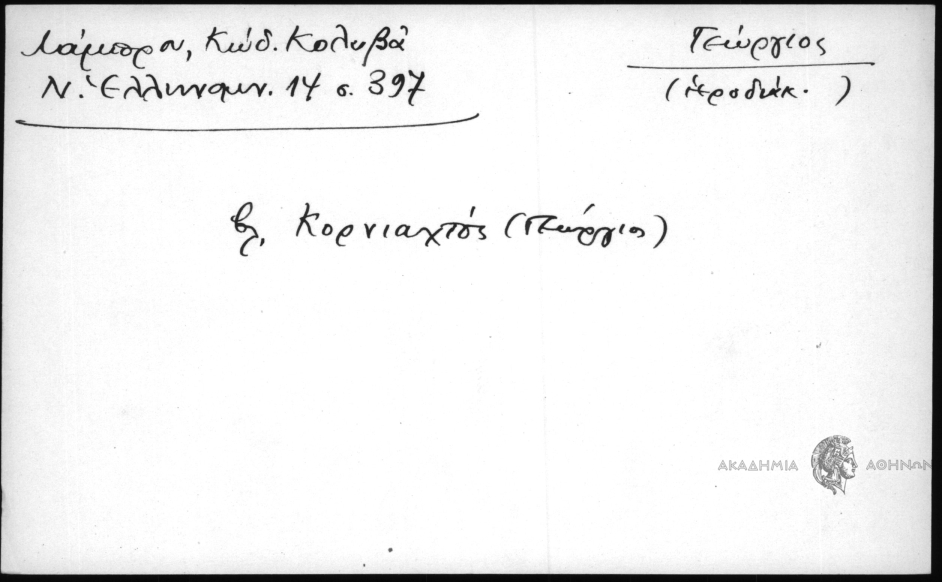 Λάμπρου, Κώδ. Κολυβᾶ
Ν. Ἑλληνομν. 14 σ. 397
Γεώργιος
(ἱεροδιάκ. )
βλ. Κορνιαχτός (Γεώργιος)
ΑΚΑΔΗΜΙΑ ΑΘΗΝΩΝ